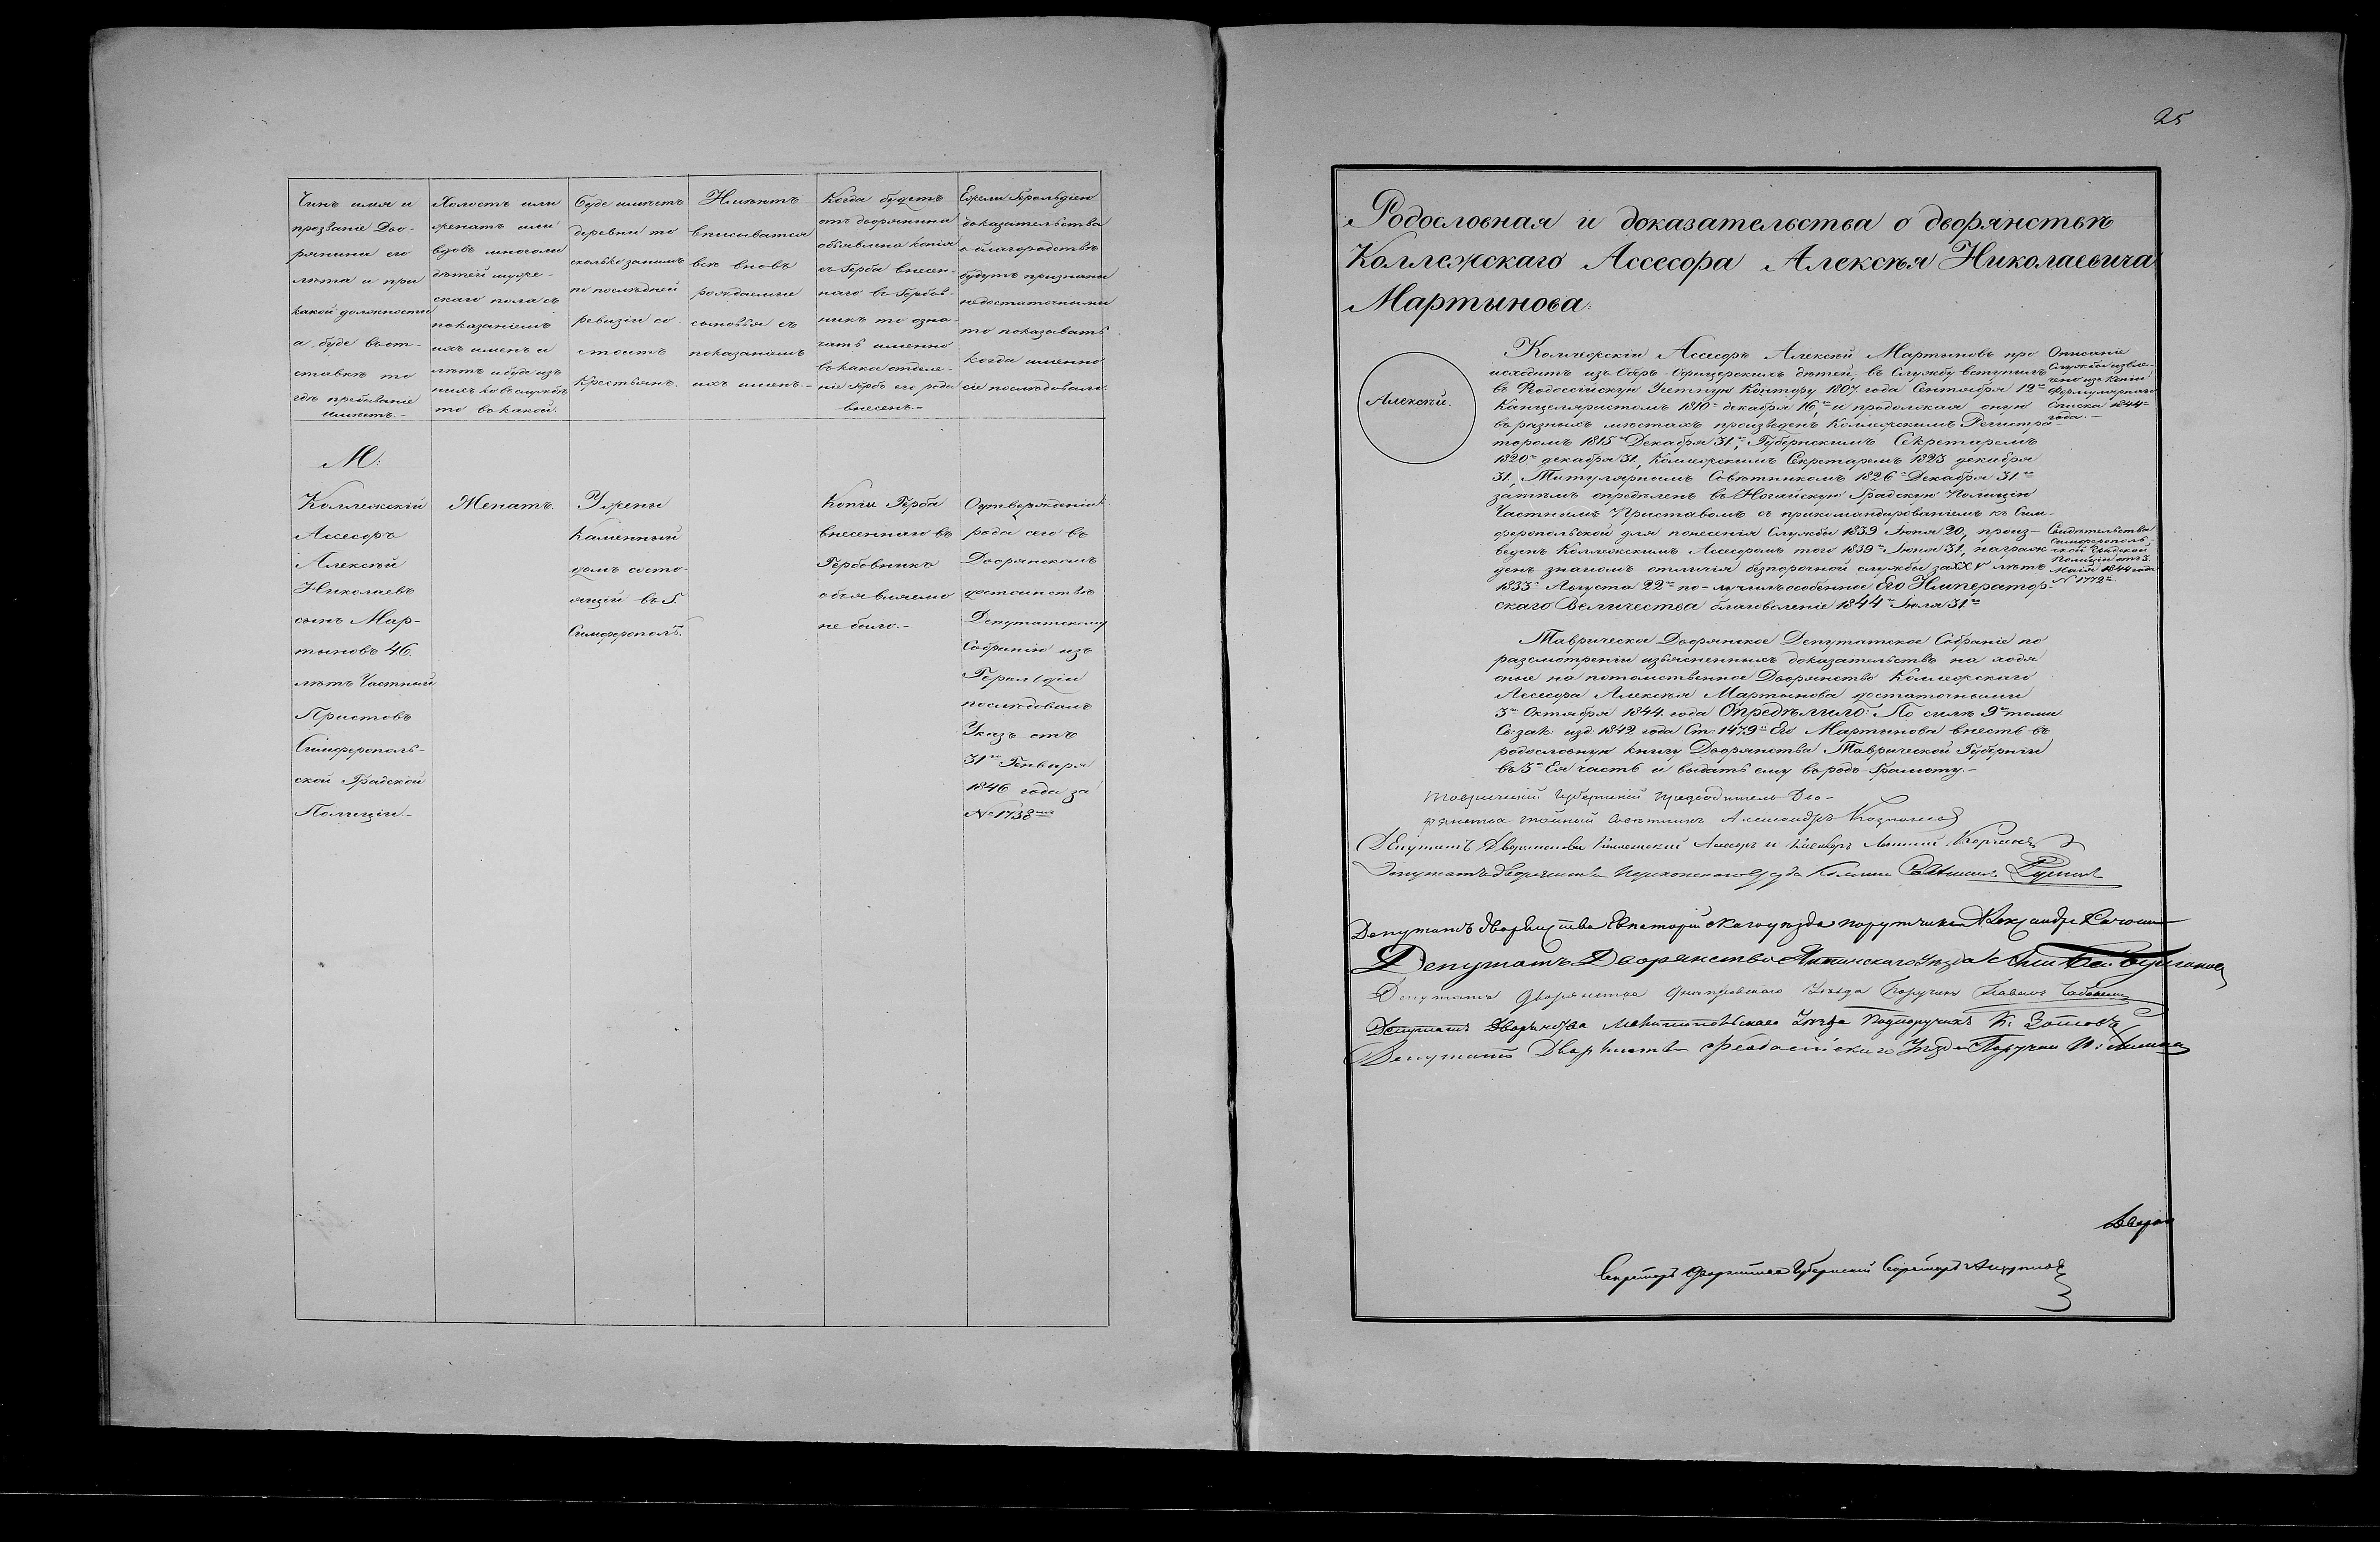 Чинъ имя и
прозваніе Дво-
рянина его
лѣта и при
какой должности
а буде въ от-
ставкѣ то
гдѣ пребываніе
имѣетъ.-
Холостъ или
женатъ или
вдовъ многоли
дѣтей муже-
скаго пола съ
показаніемъ
ихъ именъ и
лѣтъ и буде изъ
нихъ кто въ службѣ
то въ какой.
Буде имѣетъ
деревни то
сколько занимъ
по послѣдней
ревизіи со-
стоитъ
Крестьянъ.
Имѣютъ
вписыватся
всѣ вновь
рождаемые
сыновья съ
показаніемъ
ихъ именъ.-
Когда будетъ
отъ дворянина
объявлена копія
съ Герба внесен-
наго въ Гербов-
никъ то озна-
чать именно
въ какое отдѣле-
ніе Гербъ его рода
внесенъ.-
Ежели Герольдіею
доказательства
о благородствѣ
будутъ признаны
недостаточными
то показывать
когда именно
сіе послѣдовало.
М:
Коллежскій
Ассесоръ
Алексѣй
Николаевъ
сынъ Мар-
тыновъ 46.
лѣтъ Частный
Приставъ
Симферополь-
ской Градской
Полиціи.-
Женатъ.
У жены
каменный
домъ состо-
ящій въ Г.
Симферополѣ.
Копіи Герба
внесеннаго въ
Гербовникъ
объявляемо
не было.-
О утвержденіи
рода сего въ
Дворянскомъ
достоинствѣ
Депутатскому
Собранію изъ
Герольдіи
послѣдовалъ
Указъ отъ
31го Генваря
1846 года за
№ 1738мъ
25
Родословная и доказательства о дворянствѣ
Коллежскаго Ассесора Алексѣя Николаевича
Мартынова:
Алексѣй.
Коллежскій Ассесоръ Алексѣй Мартыновъ про
исходитъ изъ Оберъ-Офицерскихъ дѣтей; въ Службу вступилъ
въ Ѳеодосійскую Счетную Контору 1807 года Сентября 12го
Канцеляристомъ 1810го декабря 16го, и продолжая оную
въ разныхъ мѣстахъ произведенъ Коллежскимъ Регистра-
торомъ 1815го Декабря 31го, Губернскимъ Секретаремъ
1820го декабря 31, Коллежскимъ Секретаремъ 1823 декабря
31, Титулярнымъ Совѣтникомъ 1826го Декабря 31го
затѣмъ опредѣленъ въ Ногайскую Градскую Полицію
Частнымъ Приставомъ съ прикомандированіемъ къ Сим-
феропольской для понесенія Службы 1839 Іюня 20, произ-
веденъ Коллежскимъ Ассесоромъ того 1839го Іюня 31, награж-
денъ знакомъ отличія безпорочной службы за XXV лѣтъ
1833го Августа 22го по-лучилъ особенное Его Император-
скаго Величества благоволеніе 1844го Іюля 31го
Описаніе
Службы извле-
чено изъ копіи
Формулярнаго
Списка 1844го
года.-
Свидѣтельства
Симферополь-
ской Градской
Полиціи отъ 3
Маія 1844 года
№ 1772й
Таврическое Дворянское Депутатское Собраніе по
разсмотреніи изъясненныхъ доказательствъ на ходя
оные на потомственное Дворянство Коллежскаго
Ассесора Алексѣя Мартынова достаточными
3го Октября 1844 года Опредѣлило: По силѣ 9го тома
Св: зак: изд: 1842 года Ст: 1479й Его Мартынова внесть въ
родословную книгу Дворянства Таврической Губерніи
въ 3ю Ея часть и выдать ему въ родъ Грамоту.-
Таврическій Губернскій предводитель Дво-
рянства тайный Совѣтникъ Александръ Казначеевъ
Депутатъ Дворянства Коллежскій Ассесоръ и Кавалеръ
Депутатъ дворянства Перекопскаго уѣзда
Депутатъ дворянства Евпаторійскаго уѣзда поручикъ Александръ
Депутатъ Дворянства Ялтинскаго Уѣзда
Депутатъ Дворянства Днѣпровскаго Уѣзда Поручикъ Павелъ
Депутатъ Дворянства Мелитопольскаго Уѣзда Подпоручикъ К. Зотовъ
Депутатъ Дворянства Ѳеодосійскаго Уѣзда Поручикъ
Секретарь Дворянства Губернскій Секретарь